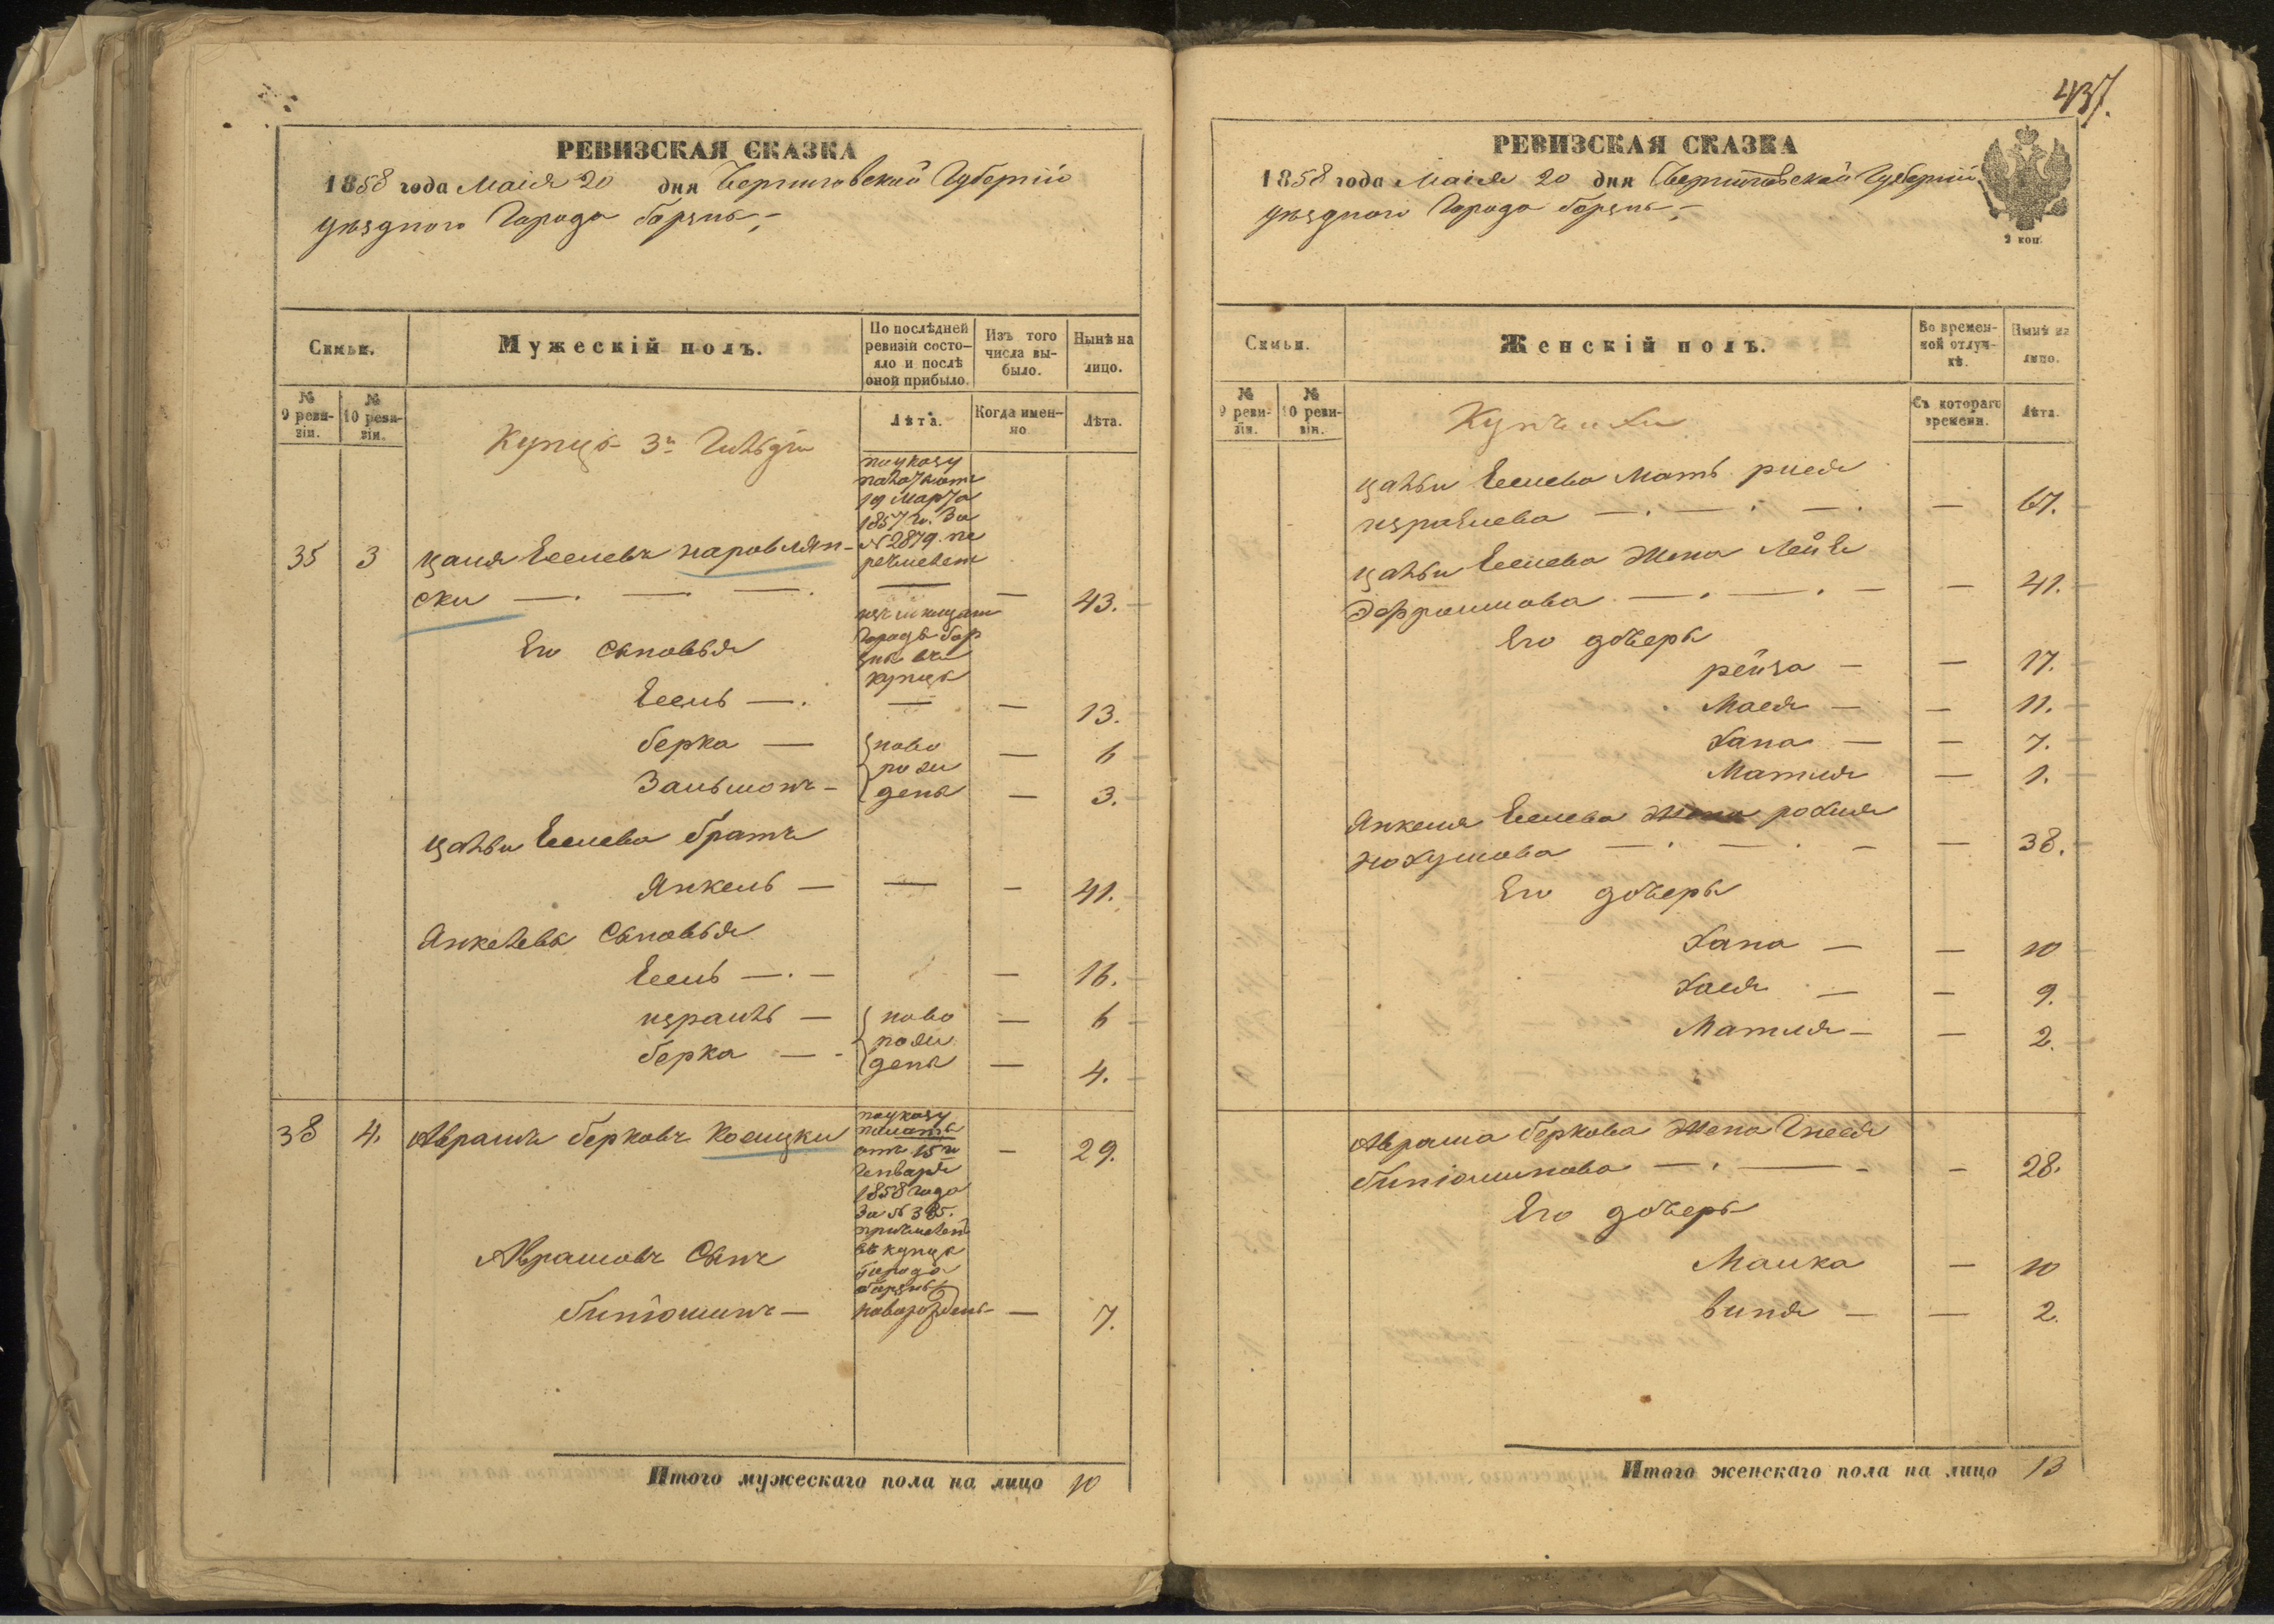 437.
РЕВИЗСКАЯ СКАЗКА
1858 года Маія 20 дня Черниговской Губерніи
уѣзднаго Города Борзны
Семьи.
Мужескій полъ.
По послѣдней ревизіи состояло и послѣ оной прибыло.
Изъ того числа выбыло.
Нынѣ на лицо.
№ 9 ревизіи.
№ 10 ревизіи.
Лѣта.
Когда именно
Лѣта.
Купцы 3й Гильдіи
по указу
палаты отъ
19 Марта
1857 г. За
№ 2879. пе
речислен
изъ мещан
Города Бор
зны въ
купцы
35 3 Цаля Еселевъ наровлян-
ски — . — . — . — 43.
Его Сыновья
Есель — . — — 13.
Берка — ново — 6
Зальмонъ — рожденъ — 3.
Цальи Еселева братъ
Янкель — — — 41.
Янкелевы Сыновья
Есель — . — — 16.
израиль — ново — 6
берка — рожденъ — 4.
38 4. Абрамъ берковъ Косицки — 29.
по указу
палаты
отъ 15 г
Генваря
1858 года
За № 385.
причислен
въ купцы
города
борзны
Абрамовъ Сынъ
биніоминъ — новорожденъ — 7.
Итого мужескаго пола на лицо 10
РЕВИЗСКАЯ СКАЗКА
1858 года Маія 20 дня Черниговской Губерніи
уѣзднаго Города Борзны
2 коп.
Семьи.
Женскій полъ.
Во временной отлучкѣ.
Нынѣ на лицо.
№ 9 ревизіи.
№ 10 ревизіи.
Съ котораго времени.
Лѣта.
Купчихи
Цальи Еселева Мать рися
израилева — . — . — . — 67.
Цальи Еселева Жена Лейе
Эфроимова — . — . — — 41.
Его дочеры
рейза — — 17.
Мася — — 11.
Хана — — 7.
Матля — 1.
Янкеля Еселева Жена рохля
нохумова — . — . — — 38.
Его дочеры
Хана — — 10
Хася — — 9.
Матля — — 2.
Абрама беркова Жена Гнеся
биніоминова — . — — — 28.
Его дочеры
Малка — 10
Виня — — 2.
Итого женскаго пола на лицо 13